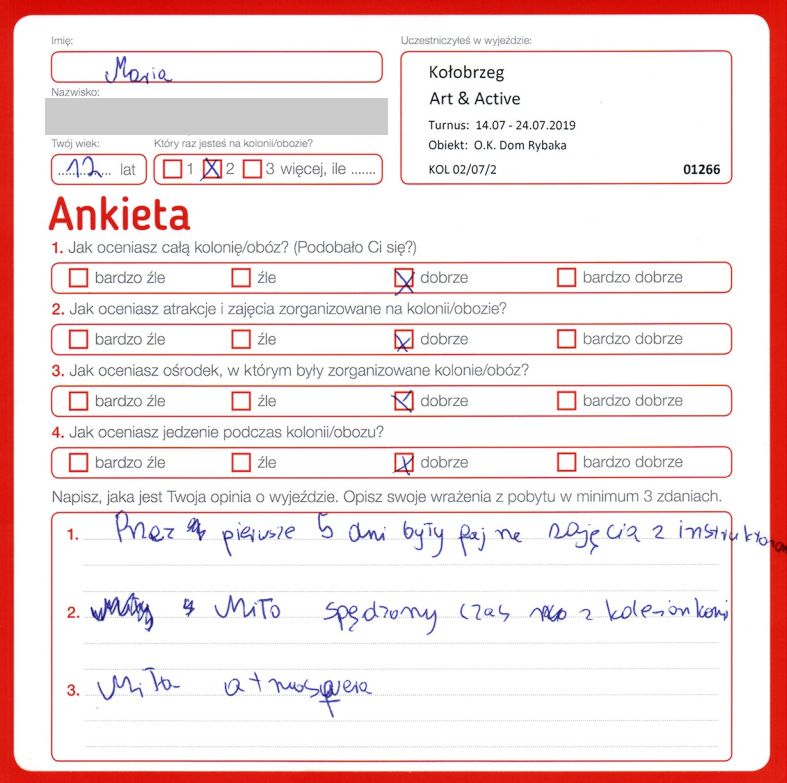 Imię:
Uczestniczyłeś w wyjeździe:
Maria
Kołobrzeg
Art & Active
Nazwisko:
Turnus: 14.07 - 24.07.2019
Obiekt: O.K. Dom Rybaka
KOL 02/07/2 01266
Twój wiek: Który raz jesteś na kolonii/obozie?
12 lat 1 2 3 więcej, ile .......
Ankieta
1. Jak oceniasz całą kolonię/obóz? (Podobało Ci się?)
bardzo źle źle dobrze bardzo dobrze
2. Jak oceniasz atrakcje i zajęcia zorganizowane na kolonii/obozie?
bardzo źle źle dobrze bardzo dobrze
3. Jak oceniasz ośrodek, w którym były zorganizowane kolonie/obóz?
bardzo źle źle dobrze bardzo dobrze
4. Jak oceniasz jedzenie podczas kolonii/obozu?
bardzo źle źle dobrze bardzo dobrze
Napisz, jaka jest Twoja opinia o wyjeździe. Opisz swoje wrażenia z pobytu w minimum 3 zdaniach.
1. Przez pierwsze 5 dni były fajne zajęcia z instruktorem
2. Miło spędzony czas z koleżankami
3. Miła atmosfera